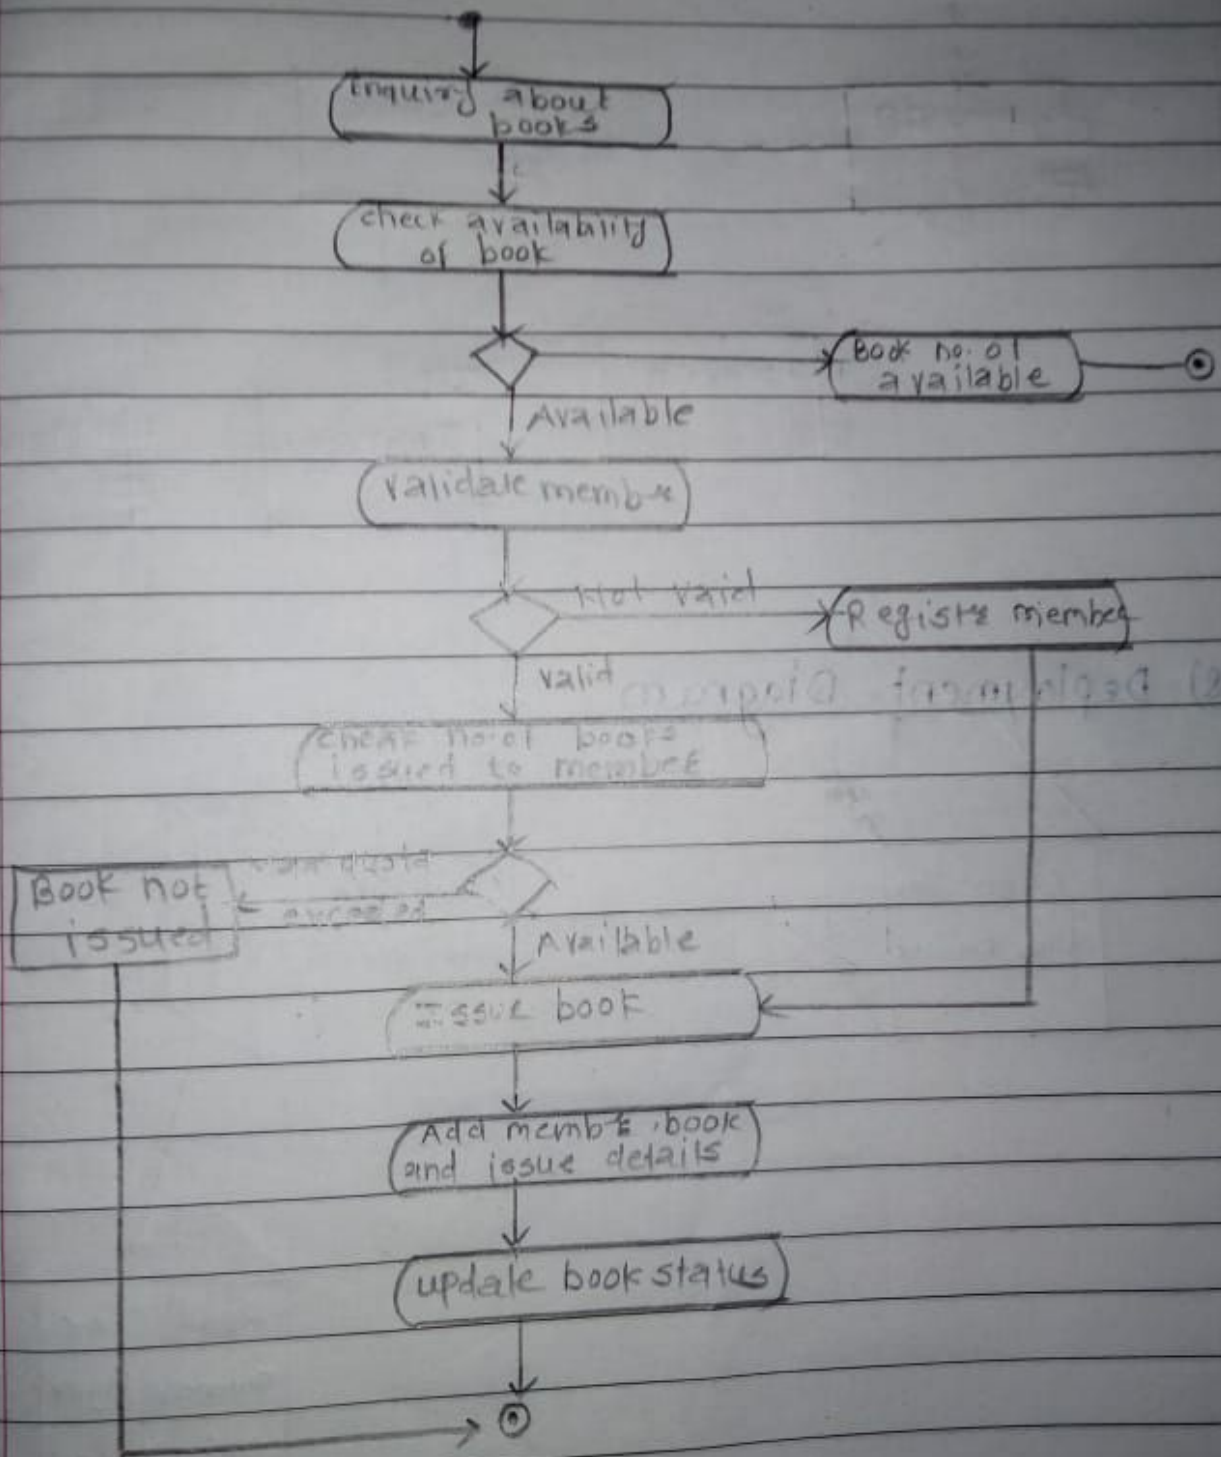 Inquiry about
books
check availability
of book
Book no. of
available
Available
validate member
Not valid
Registre member
valid
check no. of books
issued to member
quota
exceeded
Book not
issued
Available
Issue book
Add membre, book
and issue details
update book status